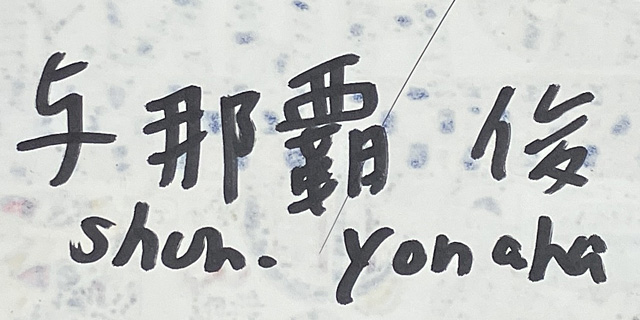 与那覇 俊
shun. yonaha